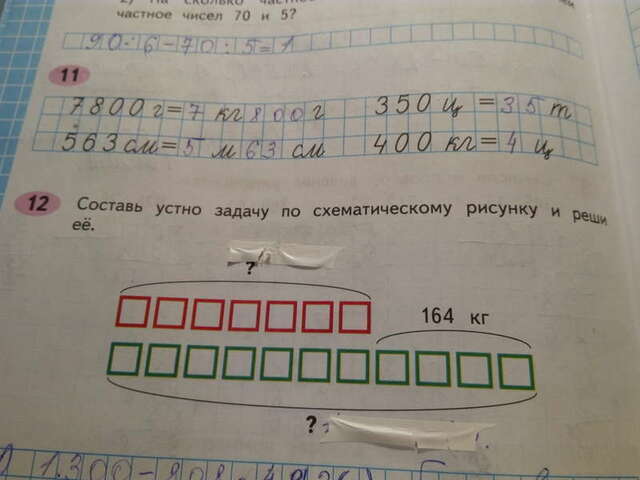 частное чисел 70 и 5?
90:6-70:5=1
11
7800 г = 7 кг 800 г 350 ц = 35 т
563 см = 5 м 63 см 400 кг = 4 ц
12 Составь устно задачу по схематическому рисунку и реши
её.
?
164 кг
?